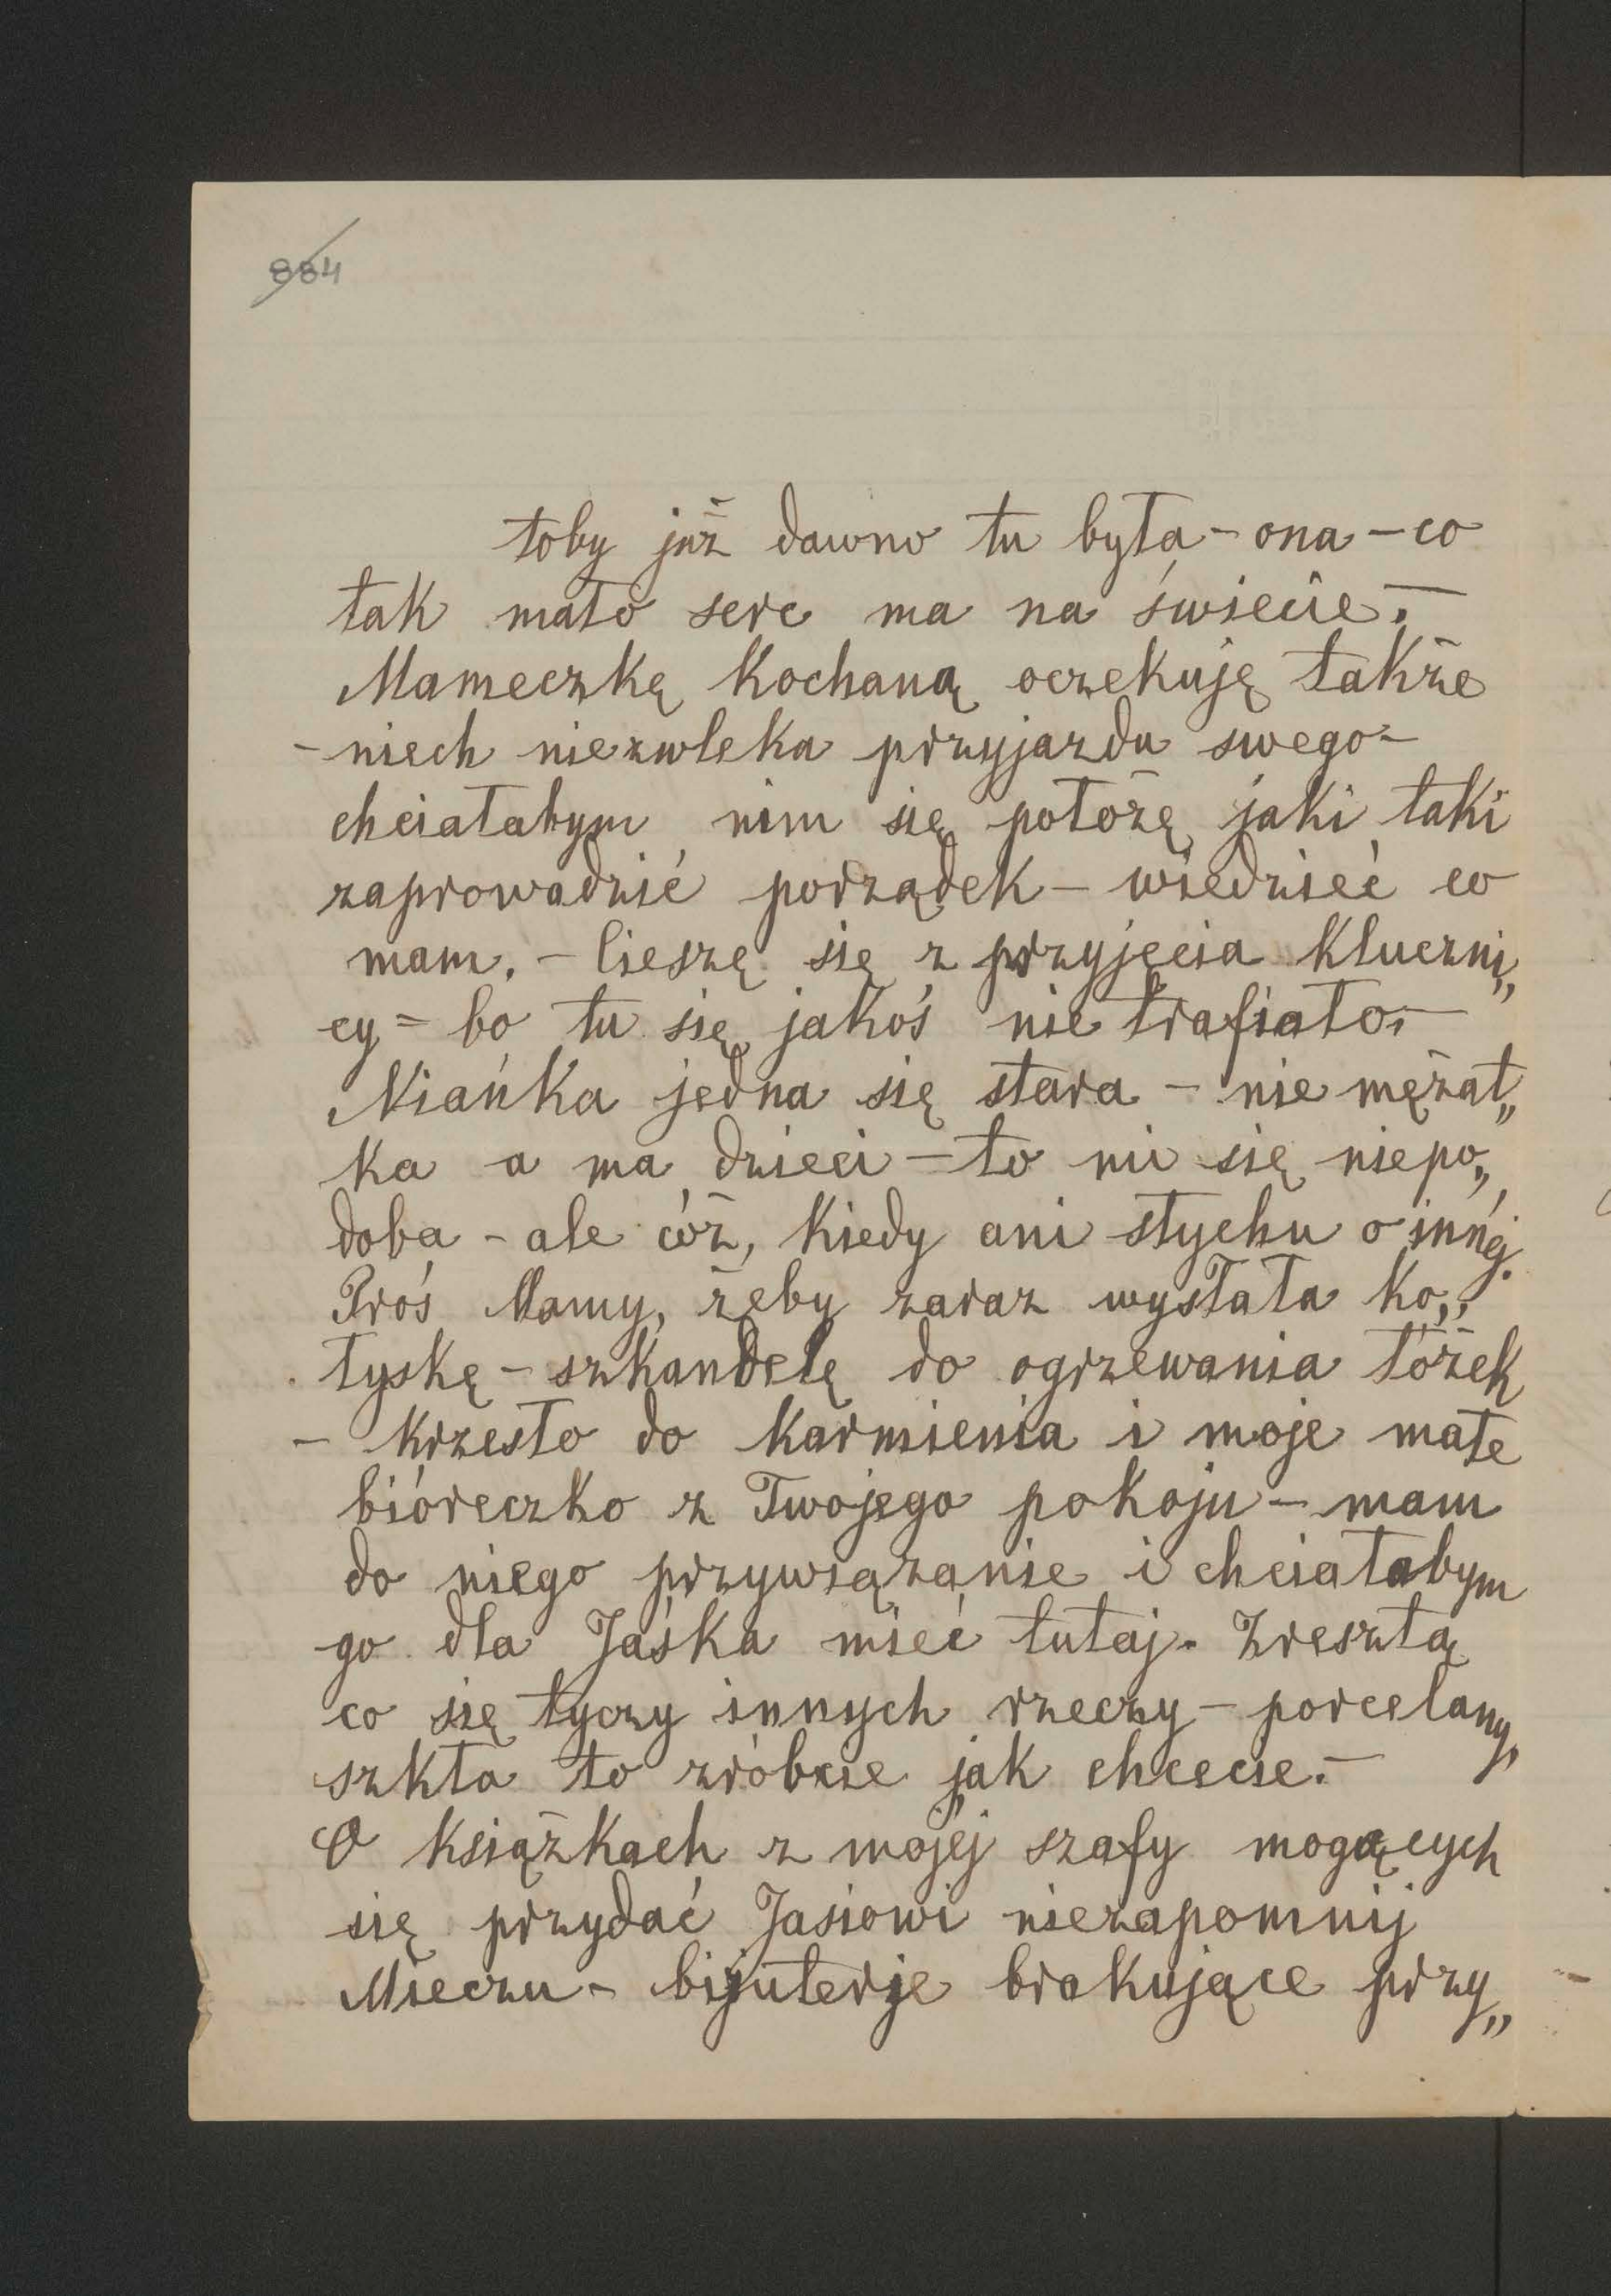 884
toby już dawno tu była - ona - co
tak mało serc ma na świecie. -
Mameczkę kochaną oczekuję także
- niech niezwleka przyjazdu swego -
chciałabym nim się położę jaki taki
zaprowadzić porządek - wiedzieć co
mam. - Cieszę się z przyjęcia kluczni„
cy = bo tu się jakoś nie trafiało. -
Niańka jedna się stara - nie mężat„
ka a ma dzieci - to mi się niepo„
doba - ale cóż, kiedy ani słychu o innéj.
Proś Mamy, żeby zaraz wysłała ko„
łyskę - szkandelę do ogrzewania łóżek
- krzesło do karmienia i moje małe
bióreczko z Twojego pokoju - mam
do niego przywiązanie i chciałabym
go dla Jaśka mieć tutaj. Zresztą
co się tyczy innych rzeczy - porcelany,
szkła to zróbcie jak chcecie. -
O książkach z mojéj szafy mogących
się przydać Jasiowi niezapomnij
Mieczu - bijuterje brakujące przy„